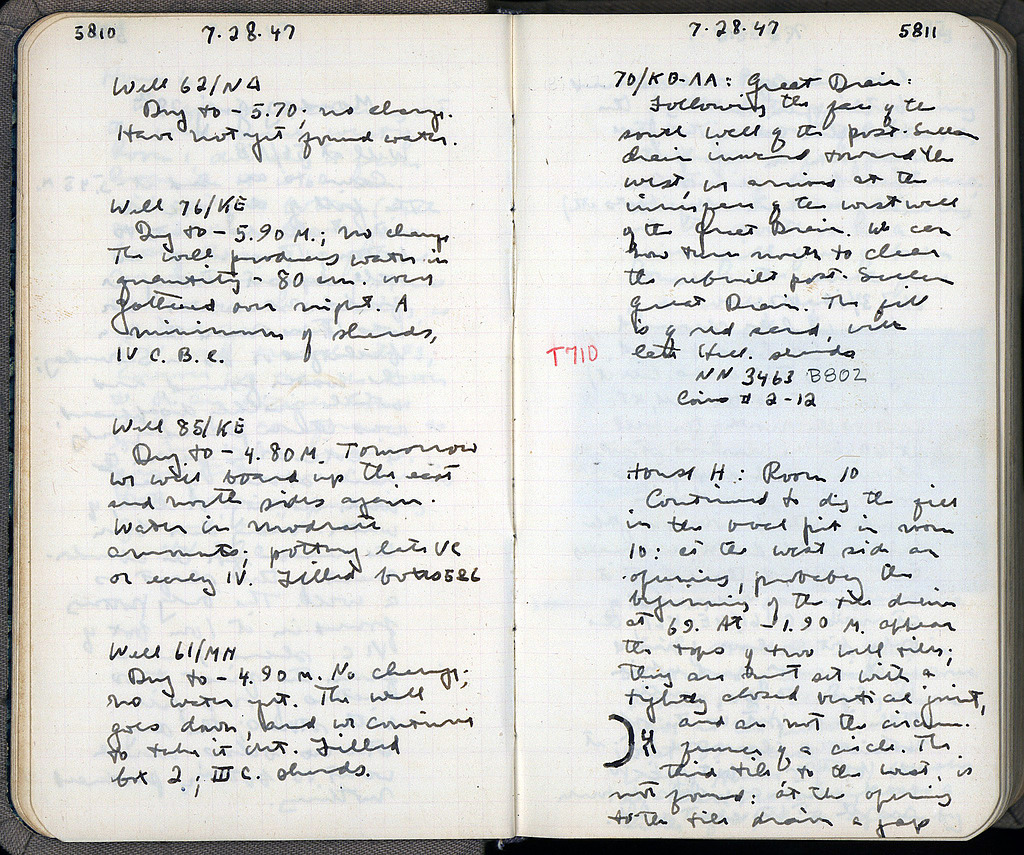 5810 7.28.47
Well 62/NΔ
Dug to -5.70; no change.
Have not yet found water.
Well 76/KE
Dug to -5.90 M.; no change
The well produces water in
quantity - 80 cm. were
gathered over night. A
minimum of sherds,
IV C. B.C.
Well 85/KE
Dug to -4.80 M. Tomorrow
we will board up the east
and north sides again.
Water in moderate
amounts; pottery late V C
or early IV. Filled
Well 61/MH
Dug to -4.90 M. No change;
no water yet. The well
goes down, and we continue
to take it out. Filled
box 2; III C. sherds.
7.28.47 5811
70/KΘ-ΛA: Great Drain:
Following the face of the
south wall of the post-Sullan
drain inward toward the
west, we arrived at the
inner face of the west wall
of the Great Drain. We can
now turn north to clear
the rebuilt post-Sullan
Great Drain. The fill
is of red sand, with
late Hell. sherds
T710
NN 3463 B802
Coins # 2-12
House H: Room 10
Continued to dig the fill
in the oval pit in room
10: at the west side an
opening, probably the
beginning of the tile drain
at 69. At -1.90 M. appear
the tops of two well tiles;
they are not set with a
tightly closed vertical joint,
and are not the circum-
ference of a circle. The
third tile, to the west, is
not found: at the opening
to the tile drain a gap